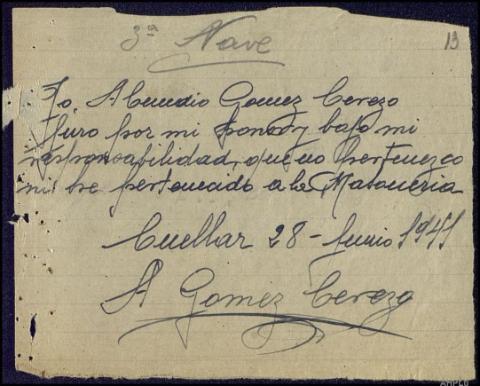 3ª Nave
13
Yo, Abundio Gomez Cerezo
Juro por mi honor y bajo mi
responsabilidad, que no pertenezco
ni he pertenecido a la Masoneria
Cuellar 28 - Junio 1941
A Gomez Cerezo